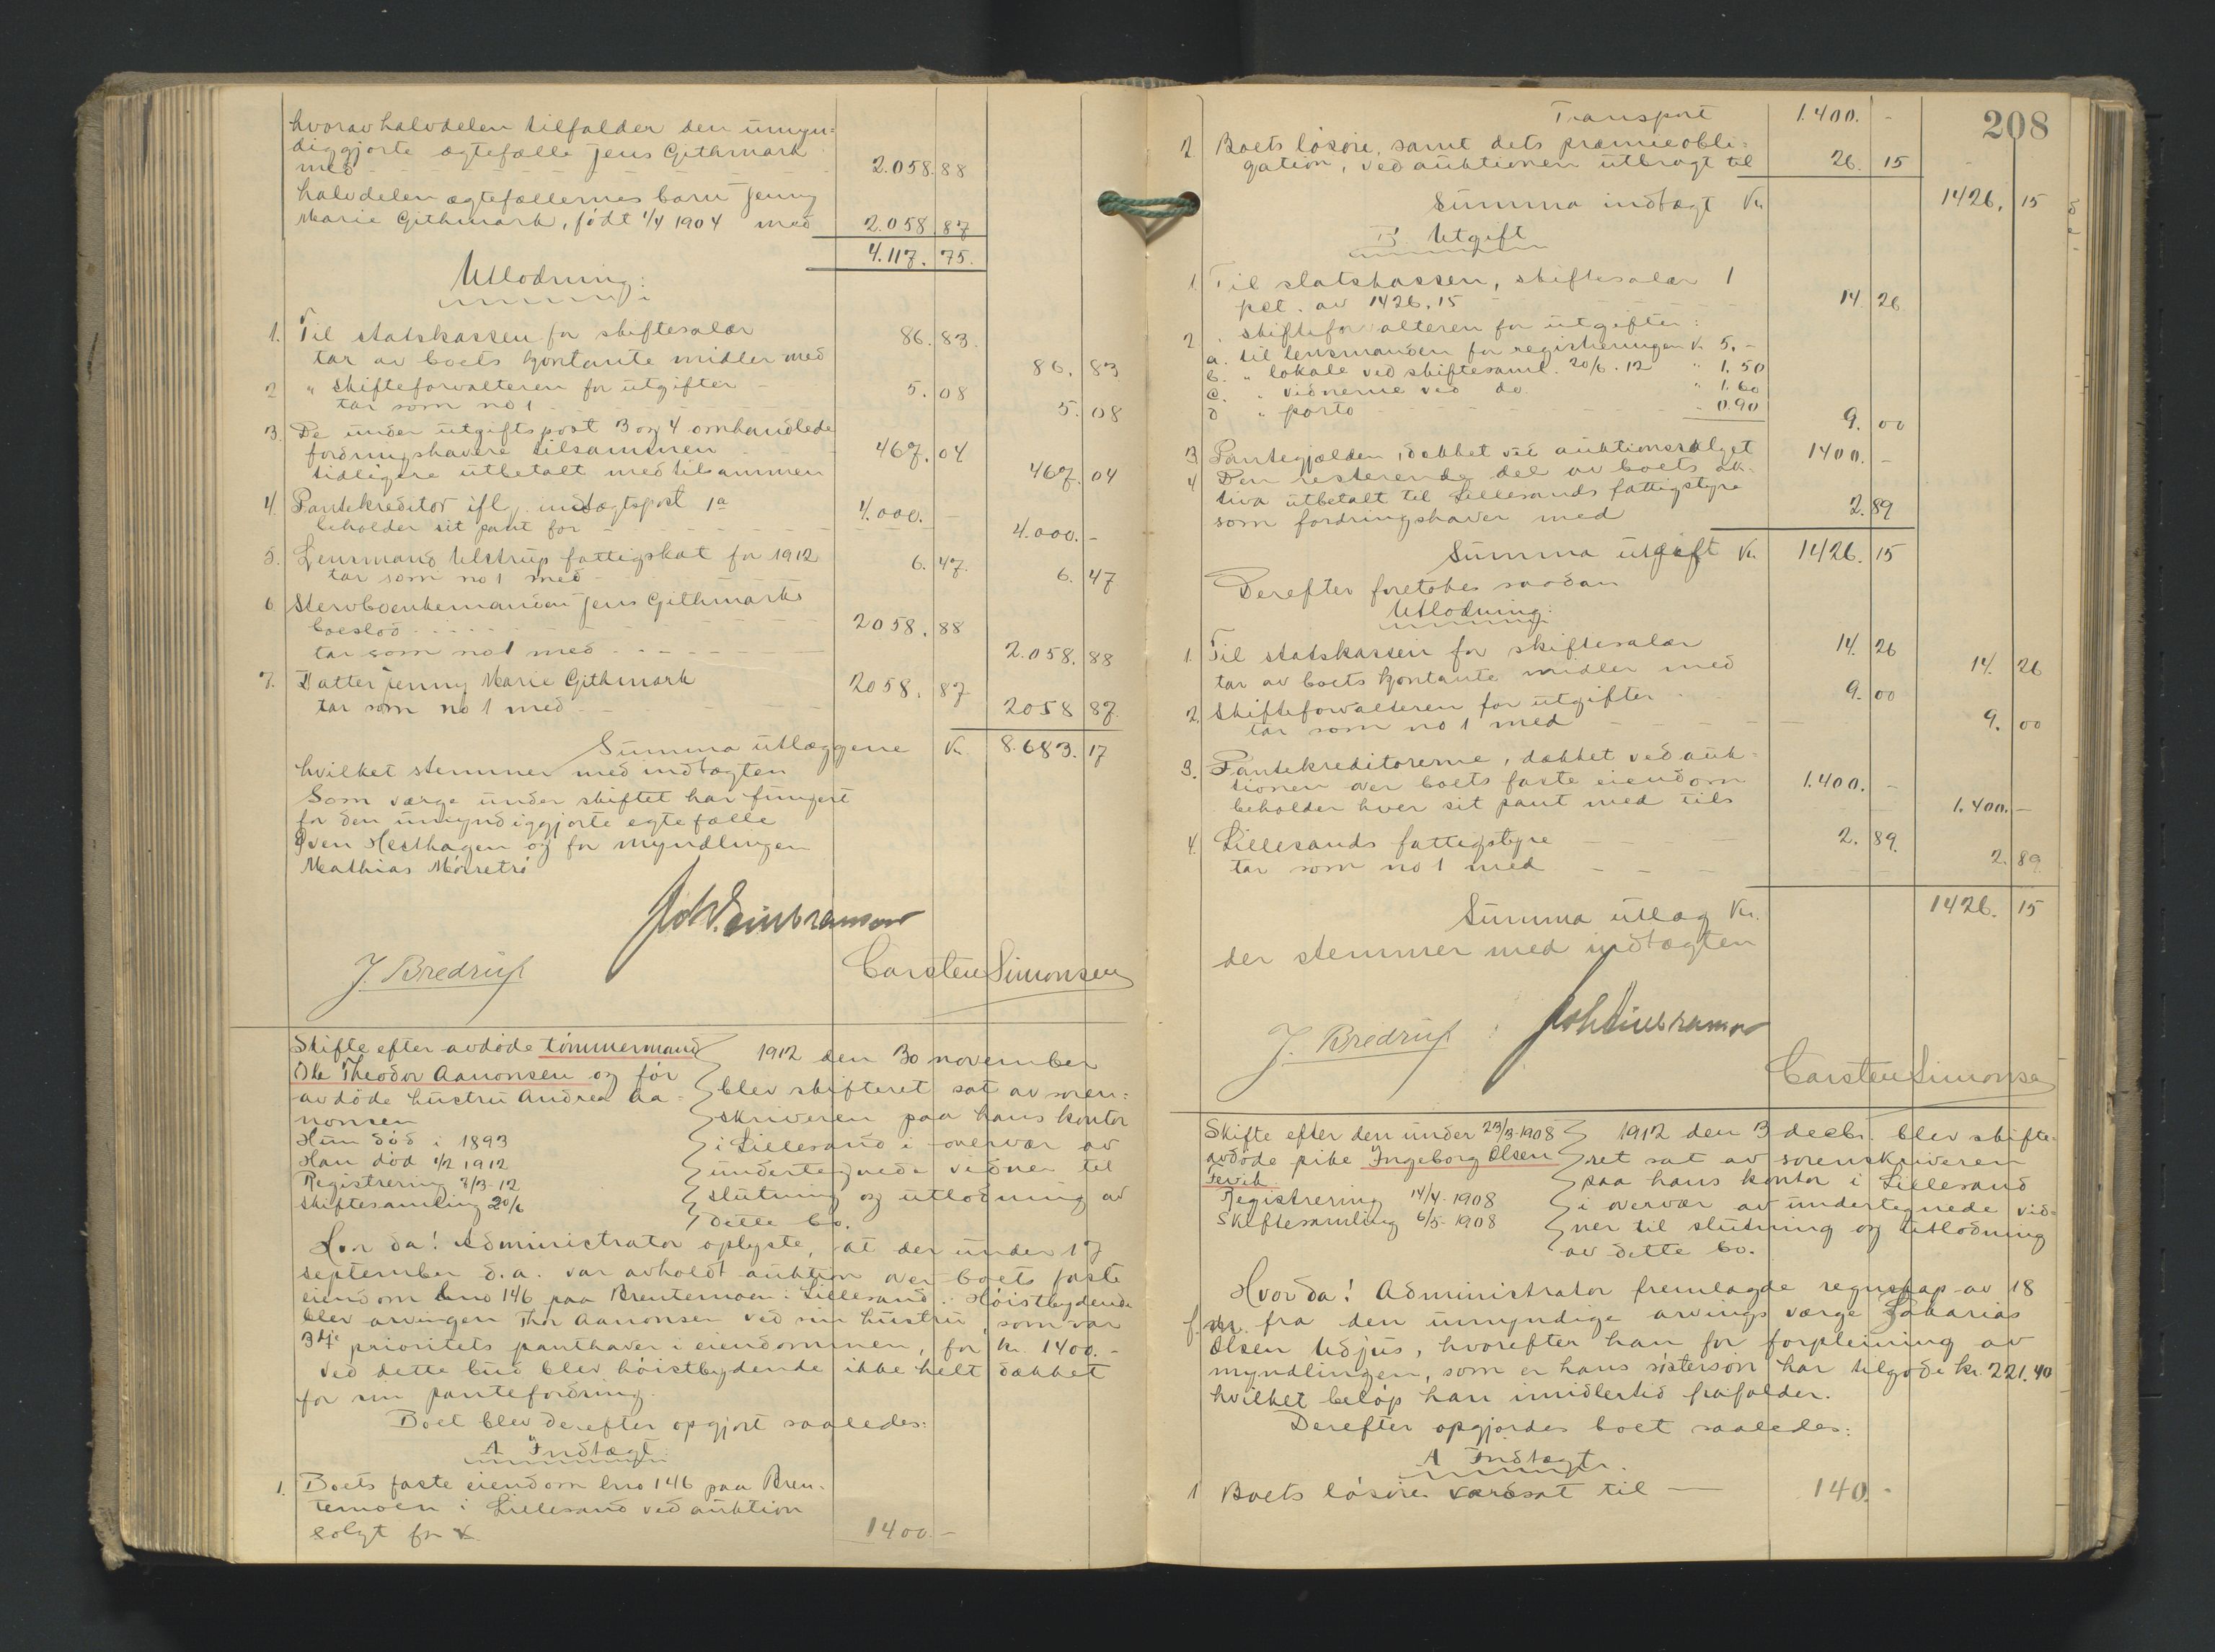 hvorav halvdelen tilfalder den umyn=
diggjorte ægtefælle Jens Githmark
med 2.058.88
halvdelen ægtefællernes barn Jenny
Marie Githmark, født 1/4 1904 med 2.058 87
4.117. 75.
Utlodning:
1. Til statskassen for skiftesalær 86. 83.
tar av boets kontante midler med 86. 83
2 " Skifteforvalteren for utgifter 5. 08
tar som no 1 5. 08
3. De under utgiftspost 3 og 4 omhandlede
fordringshavere tilsammen 467. 04
tidligere utbetalt med tilsammen 467. 04
4. Pantekreditor ifl. indtægtspost 1a 4.000. -
beholder sit pant for 4.000. -
5. Lensmand Ulstrup fattigskat for 1912 6. 47.
tar som no 1 med 6. 47
6 Stervboenkemanden Jens Githmarks
boeslod 2058. 88
tar som no 1 med 2.058. 88
7. Datter Jenny Marie Githmark 2058. 87
tar som no 1 med 2058 87
Summa utlæggene Kr. 8.683. 17
hvilket stemmer med indtægten
Som værge under skiftet har fungert
for den umyndiggjorte egtefælle
Sven Hesthagen og for myndlingen
Mathias Mørretrø
J. Bredrup
Carsten Simonsen
Skifte efter avdøde tømmermand
Ole Theodor Aanonsen og før
avdøde hustru Andrea Aa=
nonsen
Hun død i 1893
Han død 1/2 1912
Registrering 7/3-12
Skiftesamling 20/6
1912 den 30 november
blev skifteret sat av soren:
skriveren paa hans kontor
i Lillesand i overvær av
undertegnede vidner til
slutning og utlodning av
dette bo.
Hvor da! Administrator oplyste, at der under 17
september d.a. var avholdt auktion over boets faste
eiendom lno 146 paa Brentemoen i Lillesand. Høistbydende
blev arvingen Thor Aanonsen ved sin hustru, som var
3dje prioritets panthaver i eiendommen, for kr. 1400.-
Ved dette bud blev høistbydende ikke helt dækket
for sin pantefordring.
Boet blev derefter opgjort saaledes:
A Indtægt:
1. Boets faste eiendom lno 146 paa Bren-
temoen i Lillesand ved auktion
solgt for 1400.-
208
Transport 1.400. -
2 Boets løsøre, samt dets præmieobli=
gation, ved auktionen utbragt til 26. 15
Summa indtægt Kr. 1426. 15
B. Utgift
1. Til statskassen, skiftesalær 1
pct. av 1426.15 14. 26
2 . skifteforvalteren for utgifter:
a. til lensmanden for registreringen Kr 5. -
b. " lokale ved skiftesaml. 20/6. 12 " 1.50
c. " vidnerne ved do " 1.60
d " porto " 0.90 9. 00
3 Pantegjælden, dækket ved auktionssalget 1400. -
4 Den resterende del av boets ak-
tiva utbetalt til Lillesands fattigstyre
som fordringshaver med 2. 89
Summa utgift Kr. 1426. 15
Derefter foretokes saadan
Utlodning:
1. Til statskassen for skiftesalær 14. 26
tar av boets kontante midler med 14. 26
2. Skifteforvalteren for utgifter 9. 00
tar som no 1 med 9. 00
3. Pantekreditorerne, dækket ved auk-
tionen over boets faste eiendom 1.400. -
beholder hver sit pant med tils 1.400. -
4. Lillesands fattigstyre 2. 89.
tar som no 1 med 2. 89
Summa utlæg Kr. 1426. 15
der stemmer med indtægten
J. Bredrup
Carsten Simonsen
Skifte efter den under 23/3-1908
avdøde pike Ingeborg Olsen
Fevik
Registrering 14/4-1908
Skiftesamling 6/5-1908
1912 den 3 decbr. blev skifte-
ret sat av sorenskriveren
paa hans kontor i Lillesand
i overvær av undertegnede vid-
ner til slutning og utlodning
av dette bo.
Hvor da! Administrator fremlagde regnskap av 18
f. m. fra den umyndige arvings værge Zakarias
Olsen Udjus, hvorefter han for forpleining av
myndlingen, som er hans søstersøn har tilgode kr. 221.40
hvilket beløp han imidlertid frafalder.
Derefter opgjordes boet saaledes:
A Indtægt.
1 Boets løsøre værdsat til 140. -